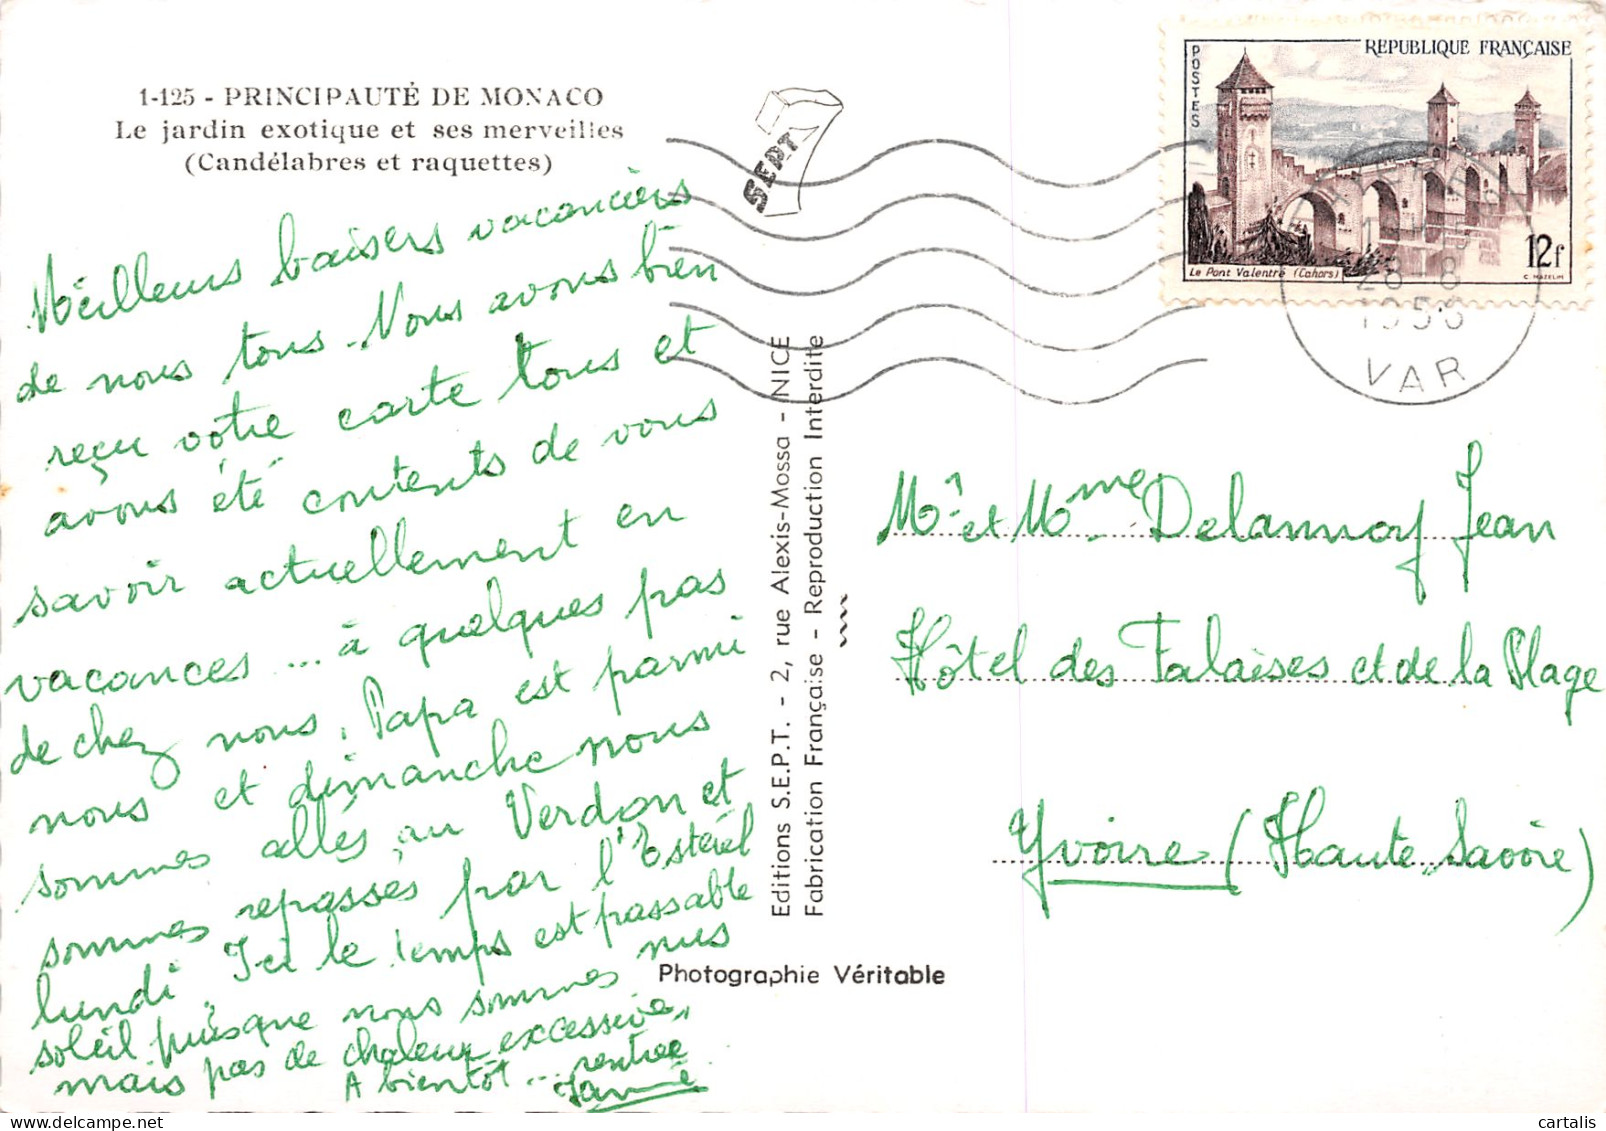 1-125 - PRINCIPAUTÉ DE MONACO
Le jardin exotique et ses merveilles
(Candélabres et raquettes)
Meilleurs baisers vacanciers
de nous tous. Nous avons bien
reçu vôtre carte tous et
avons été contents de vous
savoir actuellement en
vacances ... à quelques pas
de chez nous. Papa est parmi
nous et dimanche nous
sommes allés au Verdon et
sommes repassés par l'Estérel
lundi. Ici le temps est passable
soleil puisque nous sommes nus
mais pas de chaleur excessive,,
A bientôt ... rentrée
SEPT
Editions S.E.P.T. - 2, rue Alexis-Mossa - NICE
Fabrication Française - Reproduction Interdite
Photographie Véritable
POSTES
REPUBLIQUE FRANÇAISE
Le Pont Valentré (Cahors)
12f
C. MAZELIN
28-8
1956
VAR
Mr et Mme Delannoy Jean
Hôtel des Falaises et de la Plage
Yvoire (Haute Savoie)
cartalis